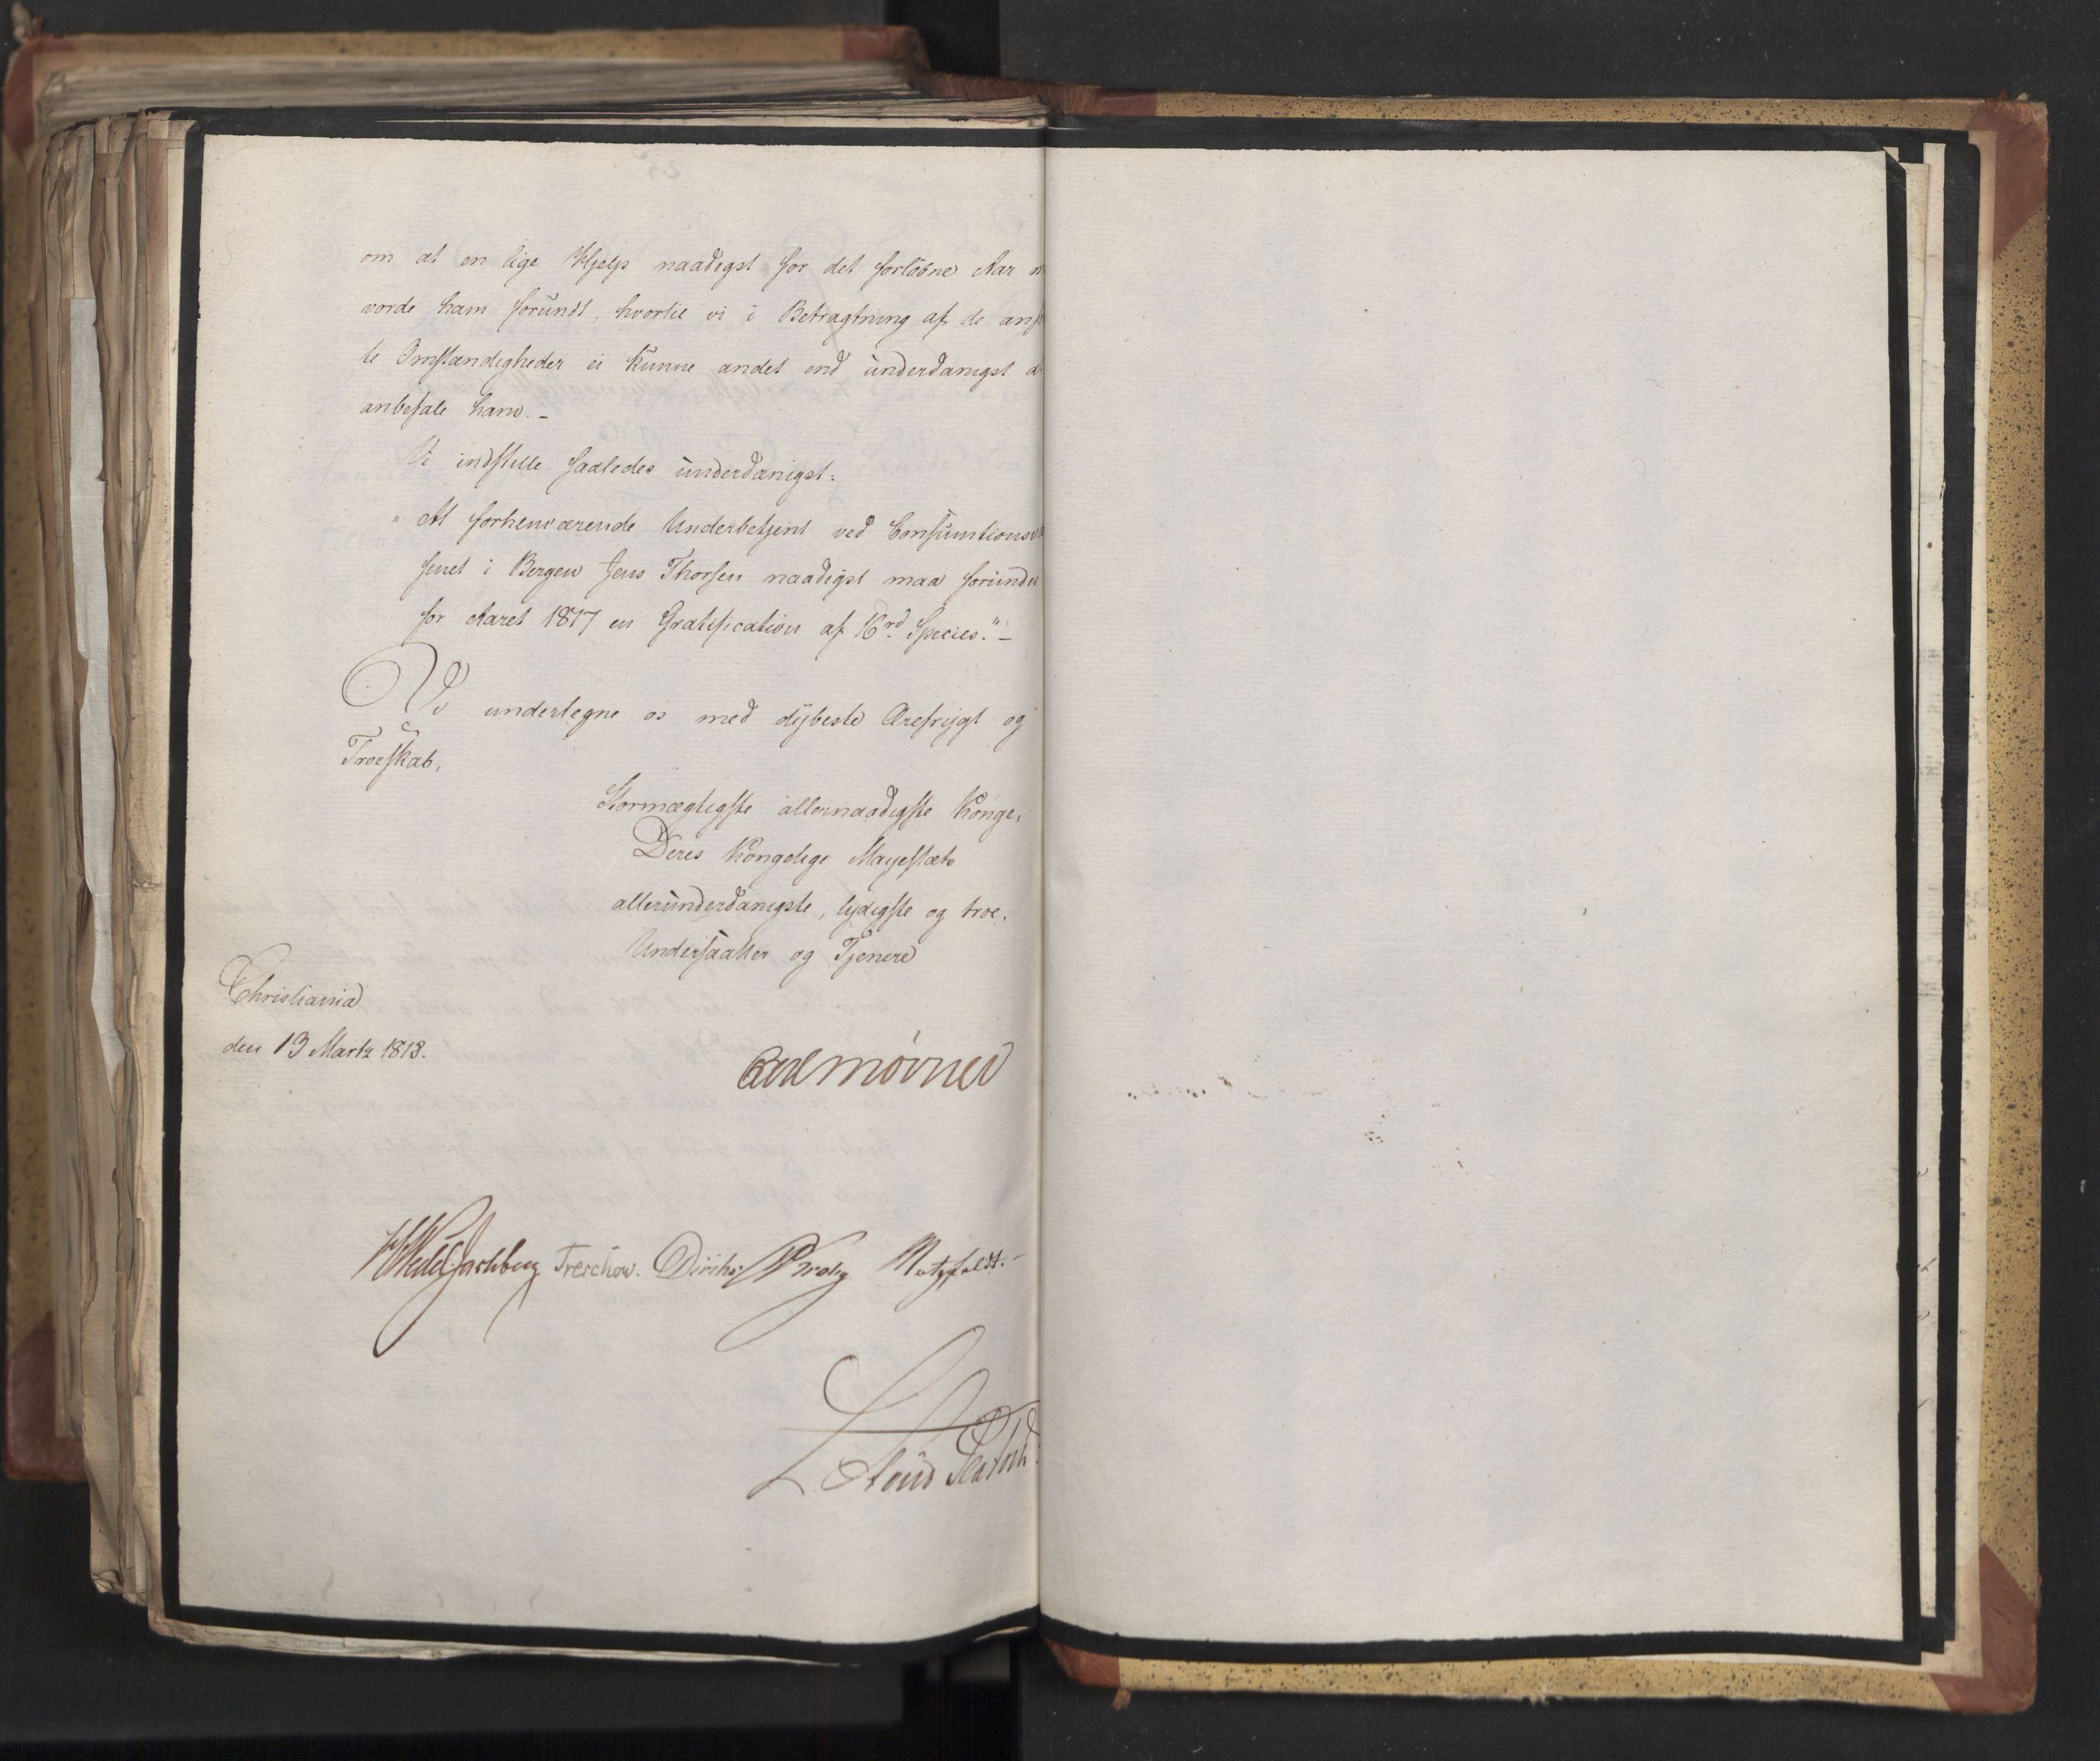 om at en lige Hjelp naadigst for det forløbne Aar
vorde ham forundt, hvortil vi i Betragtning af de anf
te Omstændigheder ei kunne andet end underdanigst
anbefale ham. -
Vi indstille saaledes underdanigst:
" At forhenværende Underbetjent ved Consumtions
senet i Bergen Jens Thorsen naadigst maa forundes
for Aaret 1817 en Gratification af 16 rd Species." -
Vi undertegne os med dybeste Ærefrygt og
Troeskab,
Stormægtigste allernaadigste Konge,
Deres Kongelige Mayestæts
allerunderdanigste, lydigste og troe.
Undersaatter og Tjenere
Christiania
den 13 Martz 1818.
Carl Mörner
HWedel Jarlsberg Treschow. Diriks Krohg Motzfeldt. -